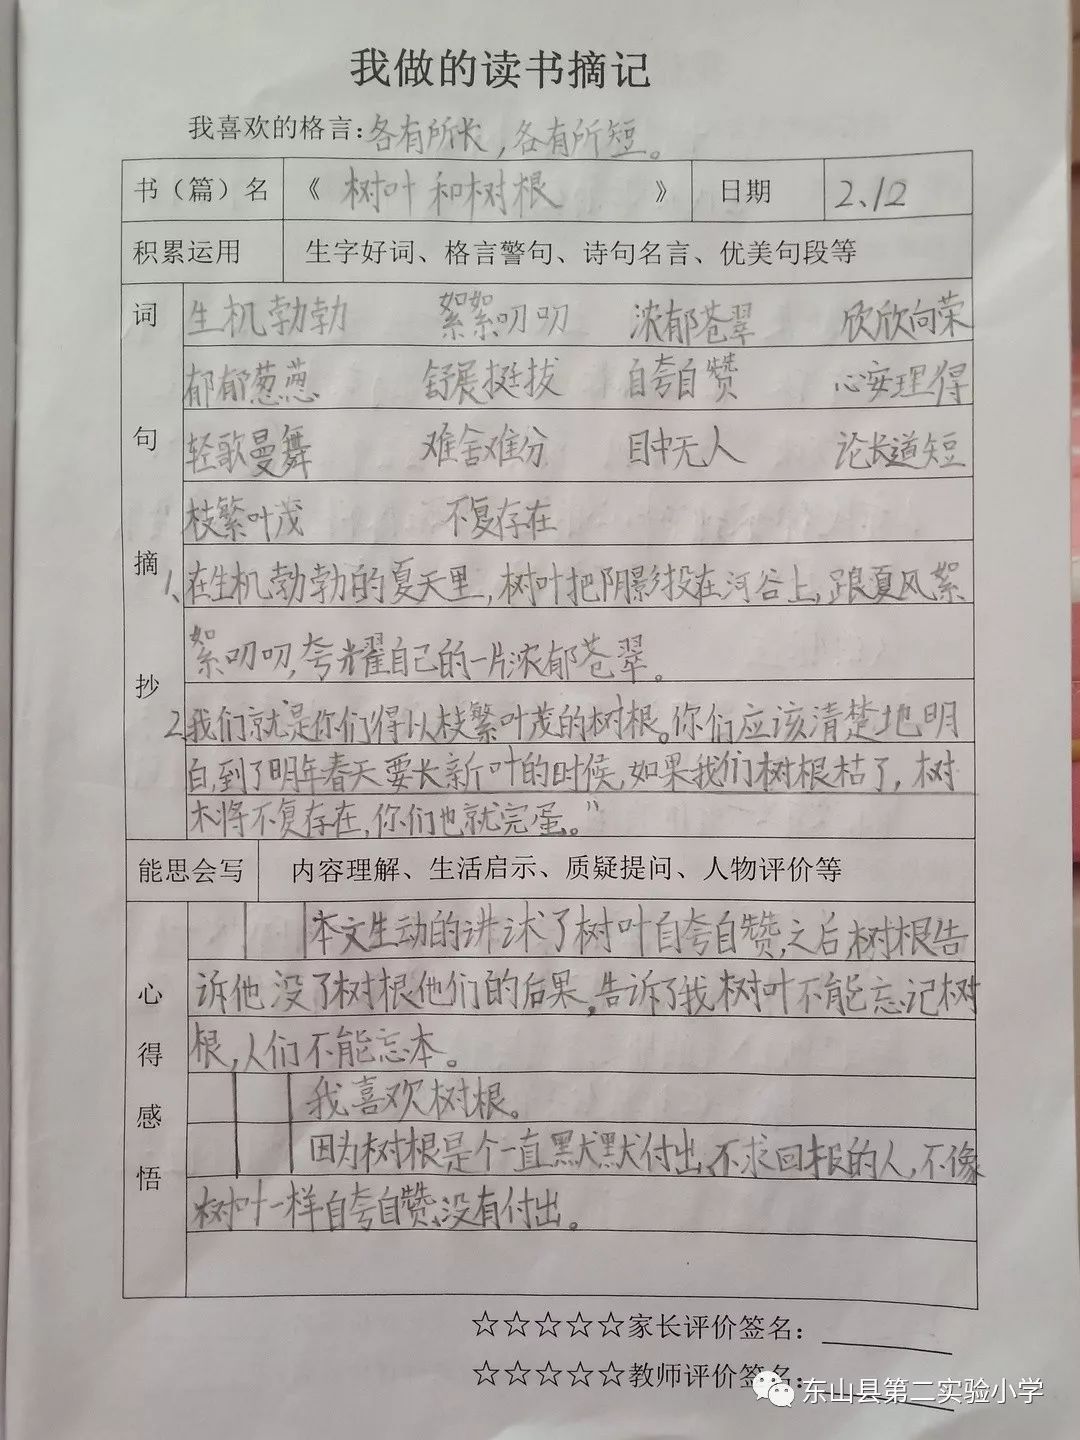 我做的读书摘记
我喜欢的格言:各有所长,各有所短。
书（篇）名 《 树叶和树根 》 日期 2、12
积累运用 生字好词、格言警句、诗句名言、优美句段等
词 生机勃勃 絮絮叨叨 浓郁苍翠 欣欣向荣
郁郁葱葱 舒展挺拔 自夸自赞 心安理得
句 轻歌曼舞 难舍难分 目中无人 论长道短
枝繁叶茂 不复存在
摘 1、在生机勃勃的夏天里,树叶把阴影投在河谷上,跟夏风絮
絮叨叨,夸耀自己的一片浓郁苍翠。
抄 2、我们就是你们得以枝繁叶茂的树根。你们应该清楚地明
白,到了明年春天要长新叶的时候,如果我们树根枯了,树
木将不复存在,你们也就完蛋。”
能思会写 内容理解、生活启示、质疑提问、人物评价等
本文生动的讲述了树叶自夸自赞,之后,树根告
心 诉他没了树根他们的后果,告诉了我,树叶不能忘记树
得 根,人们不能忘本。
感 我喜欢树根。
悟 因为树根是个一直默默付出、不求回报的人,不像
树叶一样自夸自赞、没有付出。
☆☆☆☆☆家长评价签名：
☆☆☆☆☆教师评价签名：
东山县第二实验小学